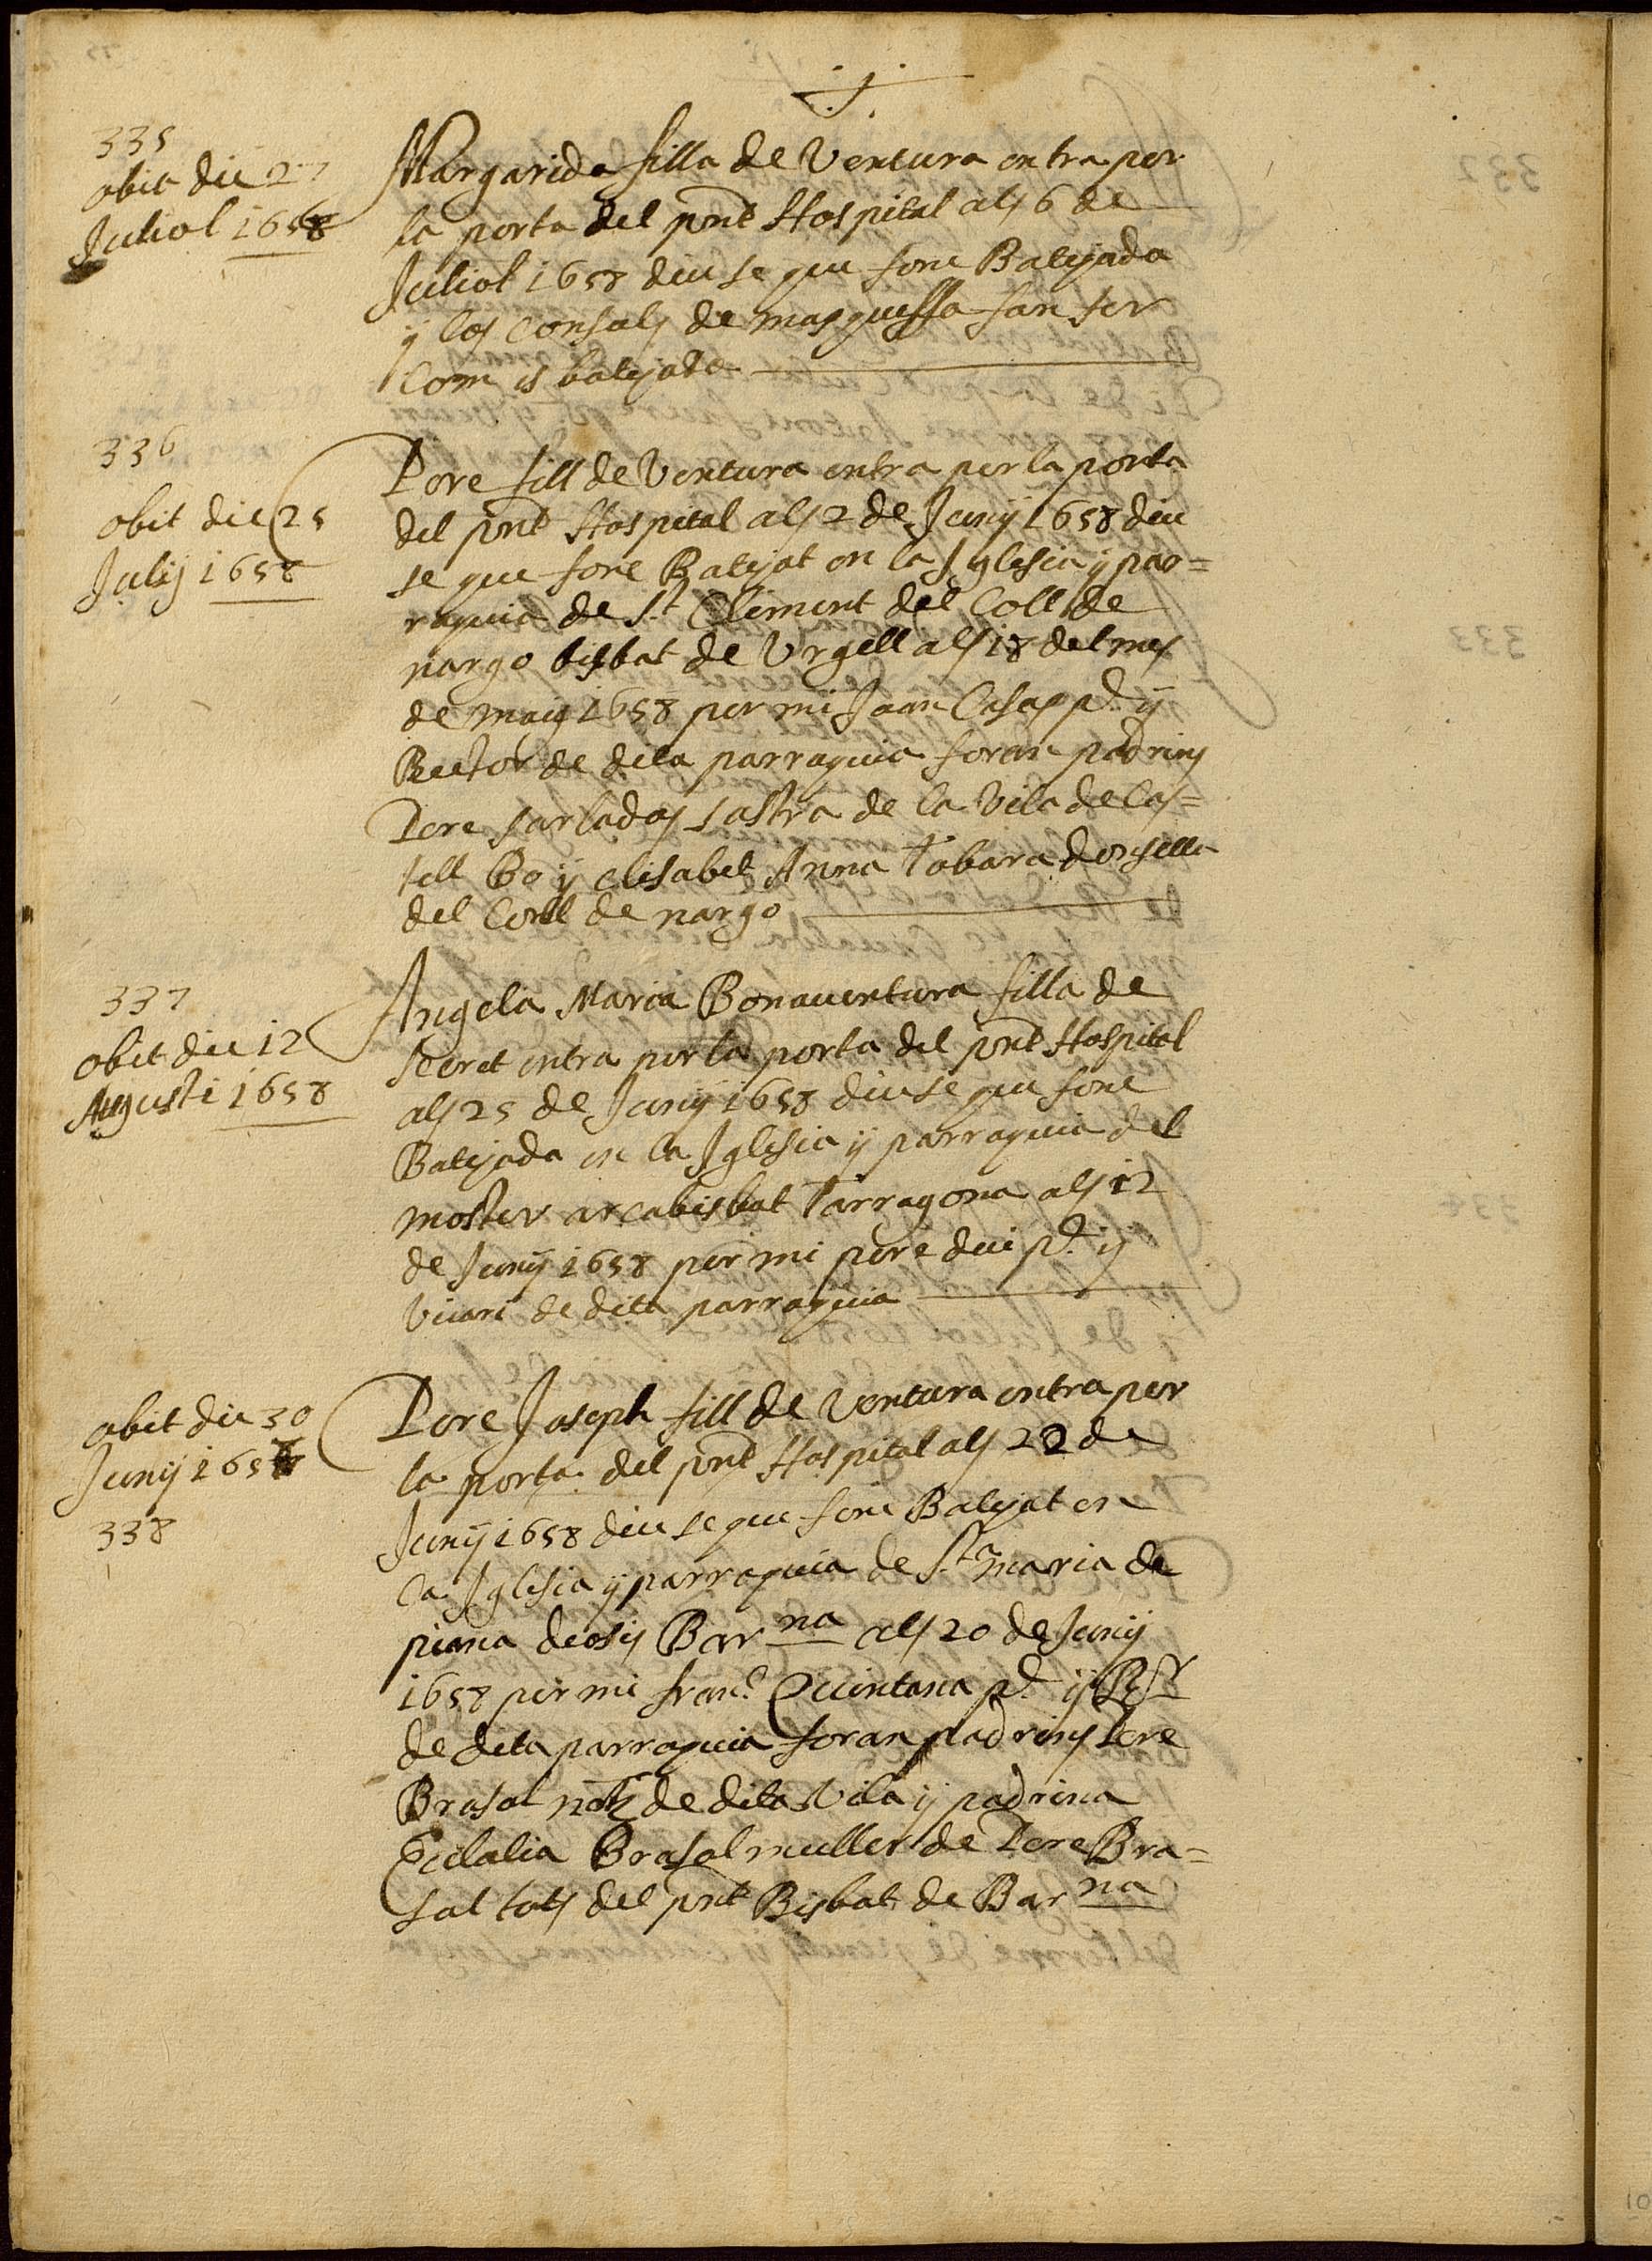 335
obit die 27
Juliol 1658
Margarida filla de Ventura entra per
la porta del pnt Hospital als 6 de
Juliol 1658 diu se que fonc Batejada
y los Consols de masquefa fan fer
Com es batejada
336
obit die 25
Julij 1658
Pere fill de Ventura entra per la porta
del pnt Hospital als 2 de Junÿ 1658 diu
se que fonc Batejat en la Iglesia ÿ par=
roquia de St. Climent del Coll de
nargo bisbat de Vrgell als 18 del mes
de maig 1658 per mi Joan Casap pr. ÿ
Rector de dita parroquia foran padrins
Pere sarlados sastra de la Vila de Cas=
tell Bo ÿ elisabet Anna tobara donsella
del Coll de nargo
337
obit die 12
Augusti 1658
Angela Maria Bonauentura filla de
secret entra per la porta del pnt Hospital
als 25 de Junÿ 1658 diu se que fonc
Batejada en la Iglesia ÿ parroquia del
moster arcabisbat tarragona als 12
de Junÿ 1658 per mi pere dui pr. ÿ
Vicari de dita parroquia
obit die 30
Junij 1658
338
Pere Joseph fill de Ventura entra per
la porta del pnt Hospital als 22 de
Junÿ 1658 diu se que fonc Batejat en
la Iglesia ÿ parroquia de Sta maria de
piera deosis Barna als 20 de Junÿ
1658 per mi franc. Quintana pr. ÿ Rr
de dita parroquia foran padrins Pere
Brasol not de dita Vila ÿ padrina
Eulalia Brasol muller de Pere Bra=
sol tots del pnt Bisbat de Barna
332
333
334
10